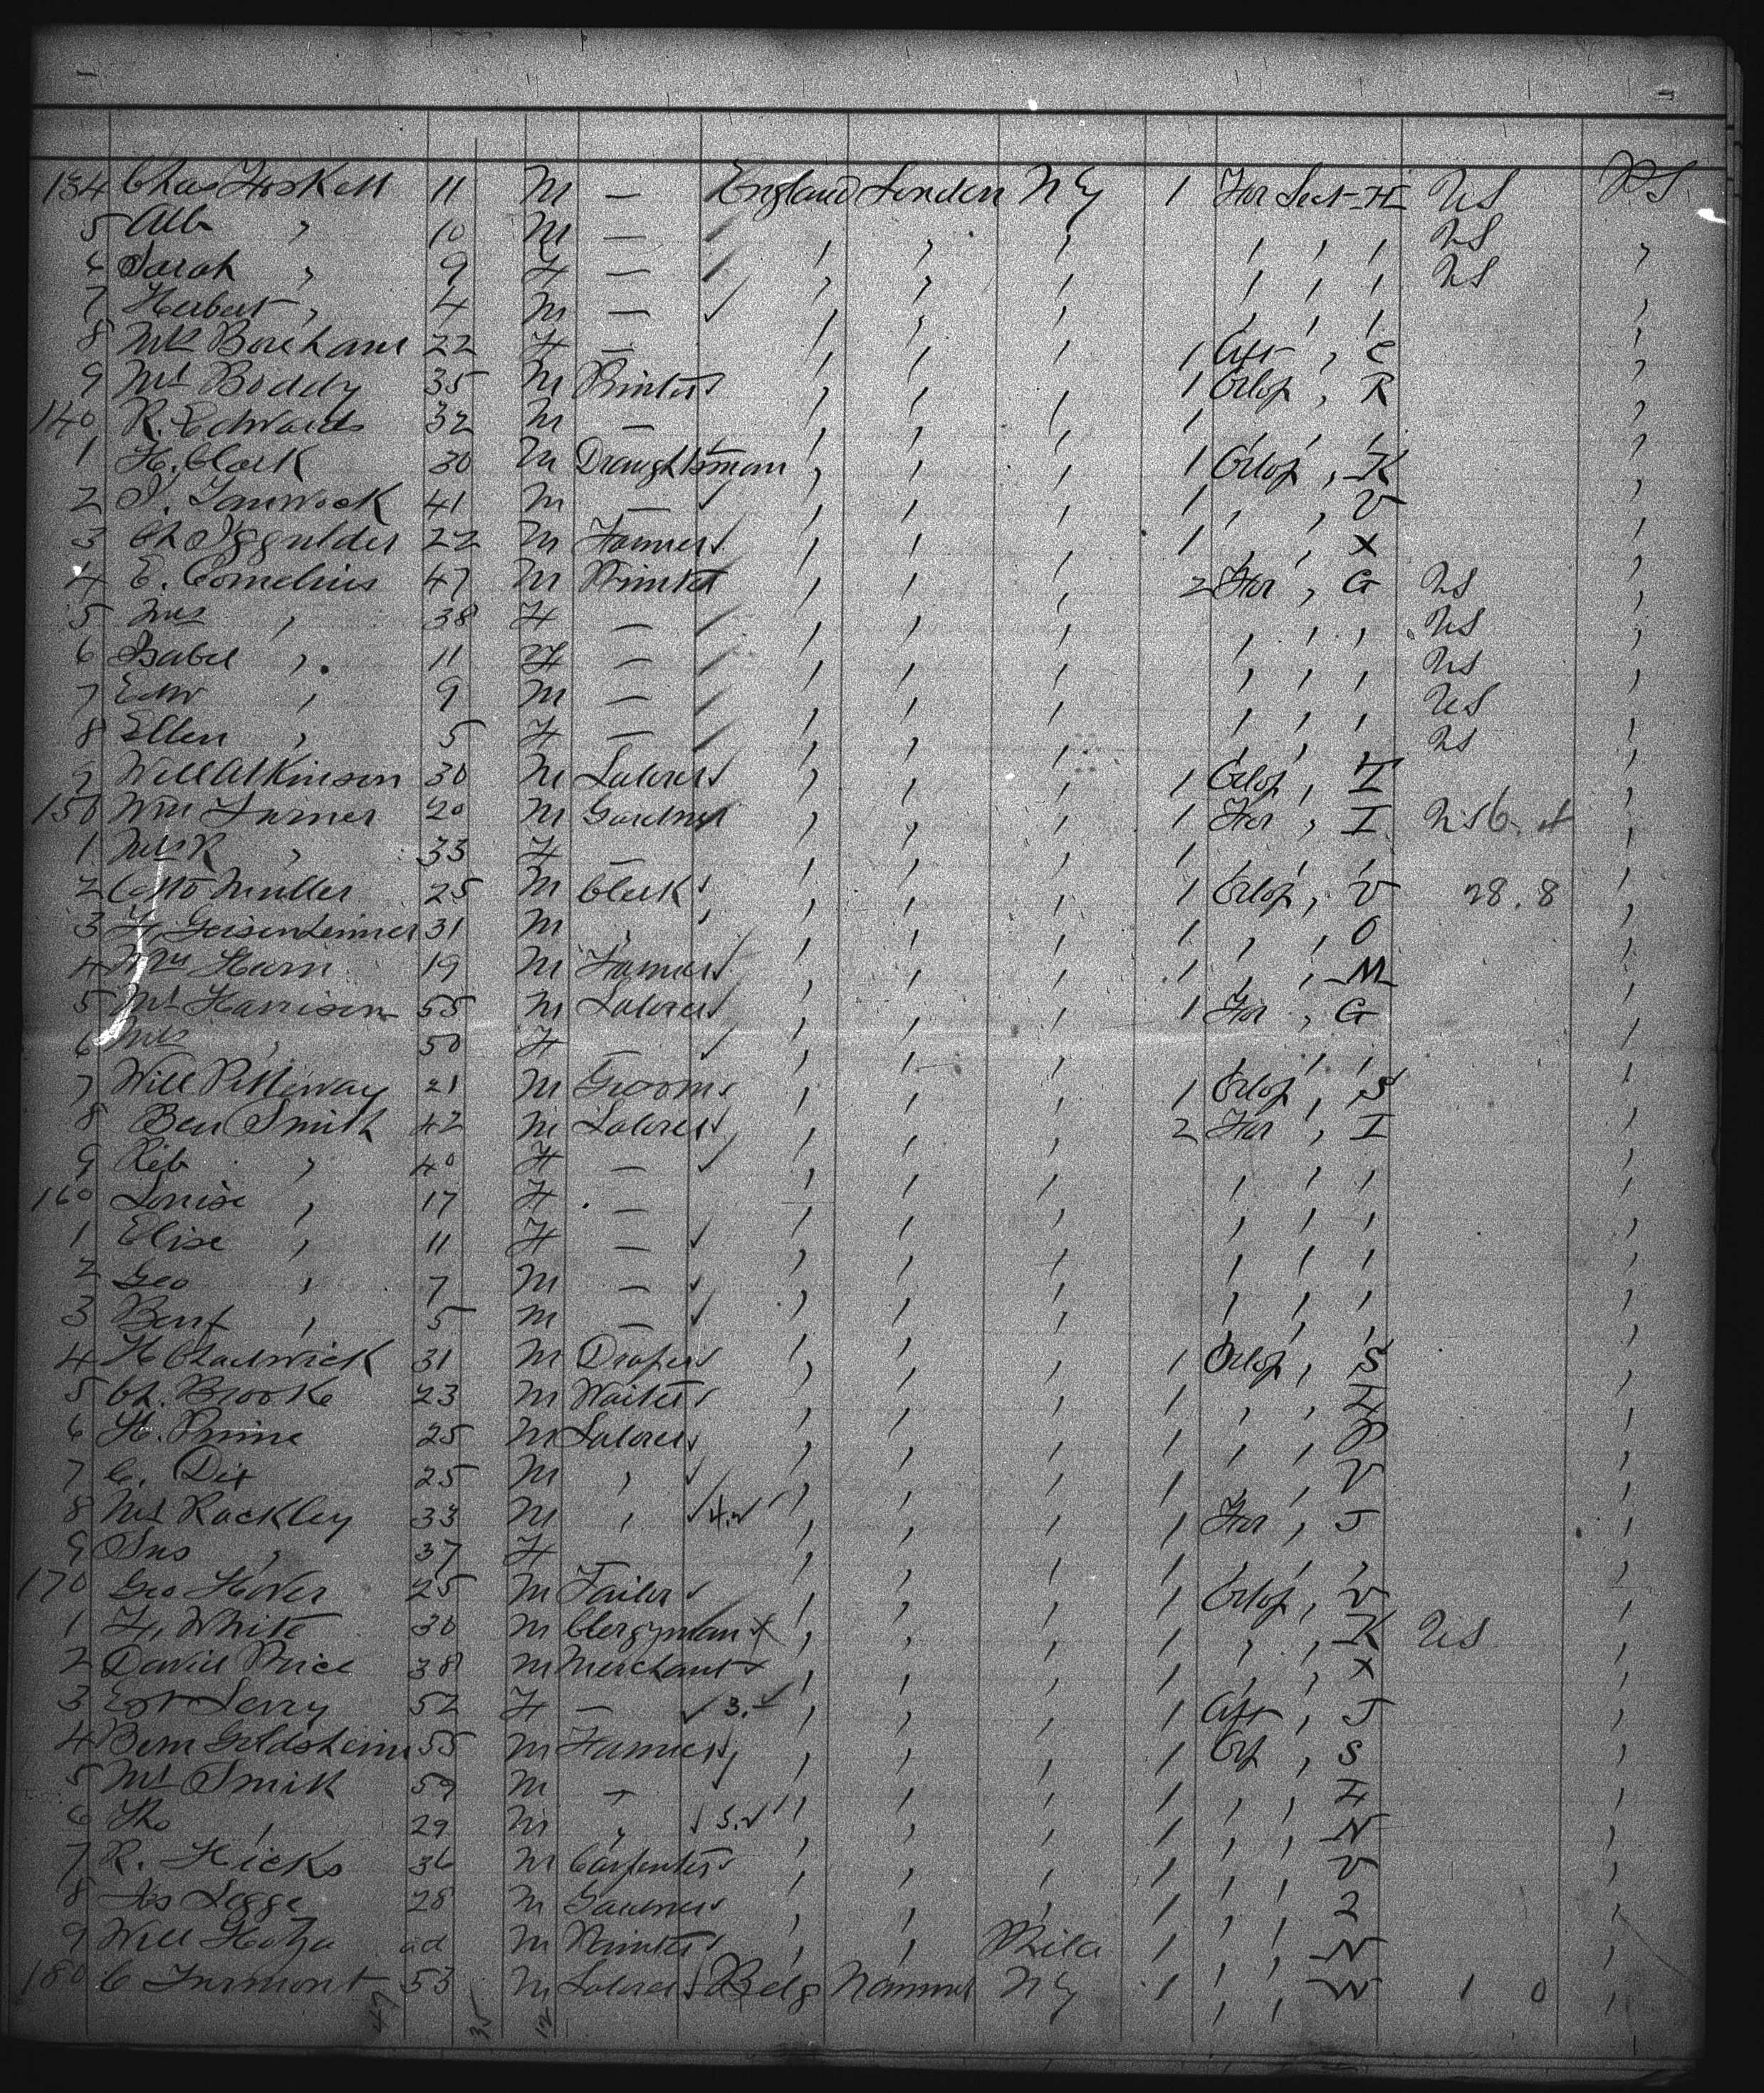 134 Chas Foskett 11 M — England London NY 1 For Sect H US PS
5 Alb , 10 M — , , , , , , US ,
6 Sarah , 9 F — , , , , , , US ,
7 Herbert , 4 M — , , , , , , ,
8 Mrs Boreham 22 F — , , , 1 Aft , C ,
9 Mr Boddy 35 M Printer , , , 1 Orlop , R ,
140 R. Edwards 32 M — , , , 1 , , , ,
1 H. Clark 30 M Draughtsman , , , 1 Orlop , K ,
2 41 M — , , , 1 , , V ,
3 Ch Iggulder 22 M Farmer , , , 1 , , X ,
4 E. Cornelius 47 M Printer , , , 2 For , G US ,
5 Mrs , 38 F — , , , , , , US ,
6 Isabel , 11 F — , , , , , , US ,
7 Edw , 9 M — , , , , , , US ,
8 Ellen , 5 F — , , , , , , US ,
9 Will Atkinson 30 M Laborer , , , 1 Orlop , I ,
150 Wm Turner 20 M Gardner , , , 1 For , I US ,
1 Mrs R , 33 F — , , , 1 , , , ,
2 Otto Muller 25 M Clerk , , , 1 Orlop , V 28.8 ,
3 Geisenheimer 31 M , , , , 1 , , O ,
4 Wm Hearn 19 M Farmer , , , 1 , , M ,
5 Mr Harrison 55 M Laborer , , , 1 For , G ,
6 Mrs , 50 F — , , , , , , ,
7 Will Pitteway 21 M Groom , , , 1 Orlop , S ,
8 Ben Smith 42 M Laborer , , , 2 For , I ,
9 Reb , 40 F — , , , , , , ,
160 Louise , 17 F — , , , , , , ,
1 Elise , 11 F — , , , , , , ,
2 Geo , 7 M — , , , , , , ,
3 Benf , 5 M — , , , , , , ,
4 H Chadwick 31 M Draper , , , 1 Orlop , S ,
5 Ch. Brooke 23 M Waiter , , , 1 , , I ,
6 H. Prime 25 M Laborer , , , 1 , , P ,
7 C. Dix 25 M , , , , 1 , , V ,
8 Mr Rackley 33 M , 4. , , , 1 For , J ,
9 , 37 F , , , 1 , , , ,
170 Geo Hover 25 M Tailor , , , 1 Orlop , V ,
1 F. White 30 M Clergyman , , , 1 , , K US ,
2 David Price 38 M Merchant , , , 1 , , X ,
3 52 F — 3. , , , 1 Aft , J ,
4 Bern Goldsheim 55 M Farmer , , , 1 Orp , S ,
5 Mr Smith 59 M , , , , 1 , , I ,
6 Tho , 29 M , 3. , , , 1 , , N ,
7 R. Hicks 36 M Carpenter , , , 1 , , V ,
8 Jos Legge 28 M , , , 1 , , Z ,
9 Will ad M Printer , , Phila 1 , , N ,
180 C Turmont 53 M Laborer Belg Nammur NY 1 , , W 1 0 ,